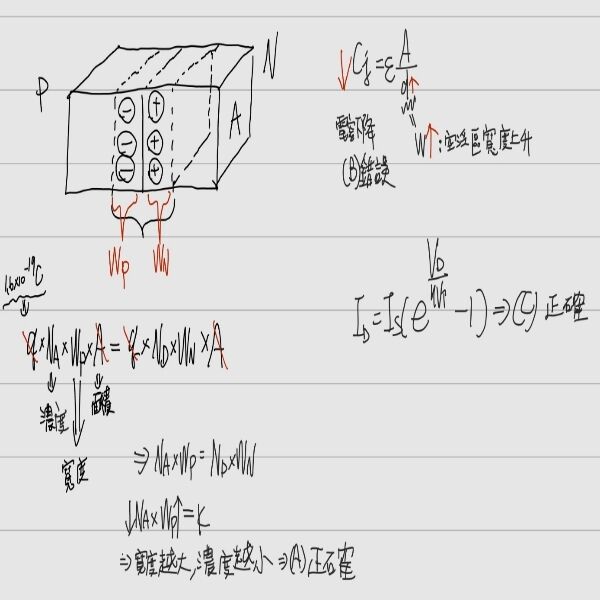 P
N
A
W_P W_N
C_j = ε A/d
W↑:空乏區寬度上升
電容下降
(B)錯誤
1.6×10^-19 C
q×N_A×W_P×A = q×N_D×W_N×A
濃度 面積
寬度
⇒ N_A×W_P = N_D×W_N
↓N_A×W_P↑ = K
⇒ 寬度越大,濃度越小 ⇒ (A)正確
I_D = I_S(e^(V_D/nV_T) -1) ⇒ (C)正確